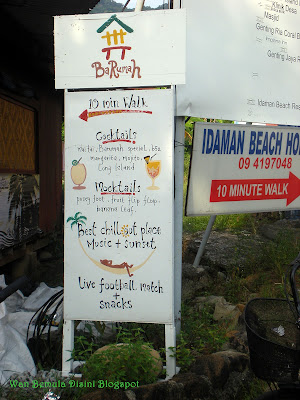 BaRumah
10 min Walk
Cocktails
Maitai, Barumah special, b52
margarita, Mojito,
Cony Island
Mocktails
pussy foot, fruit flip flop,
banana leaf.
Best chillout place
Music + sunset
Live football match
+
snacks
Klinik Desa
Masjid
Genting Ria Coral B
Genting Jaya R
Idaman Beach Res
IDAMAN BEACH HO
09 4197048
10 MINUTE WALK
Wan Bemula Disini Blogspot